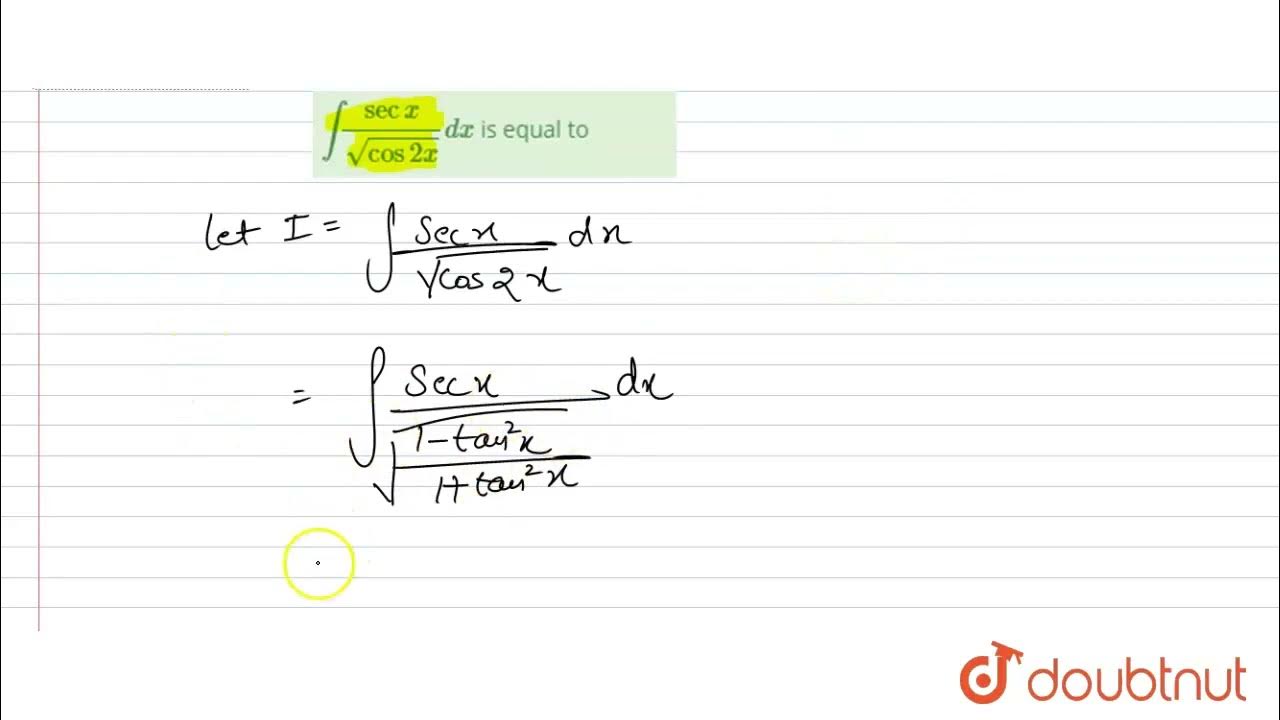 ∫ sec x / √cos 2x dx is equal to
let I = ∫ Sec x / √cos 2x dx
= ∫ Sec x / √((1 - tan² x) / (1 + tan² x)) dx
doubtnut